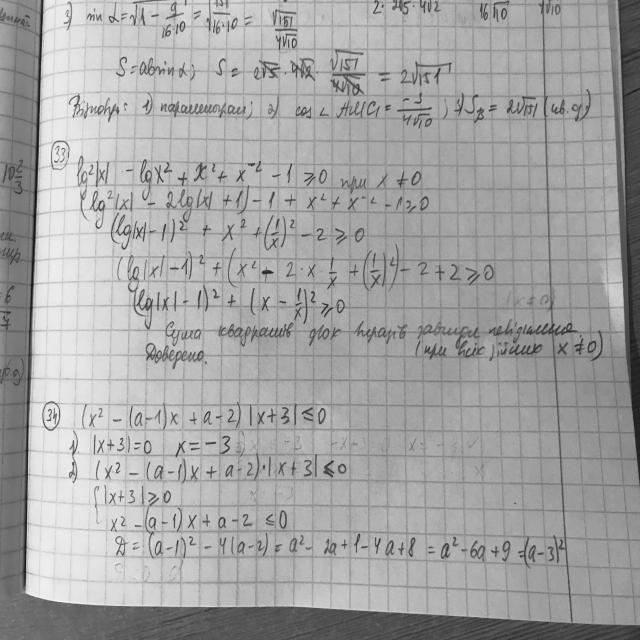 3) sin α = √(1 - 9/(16·10)) = √151/√(16·10) = √151/(4√10)
S = ab sin α; S = 2√5 · 4√2 · √151/(4√10) = 2√151
Відповідь: 1) паралелограм; 2) cos ∠ = -3/(4√10); 3) S = 2√151 (кв. од)
33
lg²|x| - lgx² + x² + x⁻² - 1 ≥ 0 при x ≠ 0
(lg²|x| - 2lg|x| + 1) - 1 + x² + x⁻² - 1 ≥ 0
(lg|x| - 1)² + x² + (1/x)² - 2 ≥ 0
(lg|x| - 1)² + (x² - 2·x·1/x + (1/x)²) - 2 + 2 ≥ 0
(lg|x| - 1)² + (x - 1/x)² ≥ 0
Сума квадратів двох виразів завжди невід'ємна
Доведено. (при всіх x ≠ 0)
34 (x² - (a-1)x + a-2)|x+3| ≤ 0
1) |x+3| = 0 x = -3
2) (x² - (a-1)x + a-2)·|x+3| ≤ 0
{ |x+3| ≥ 0
x² - (a-1)x + a-2 ≤ 0
D = (a-1)² - 4(a-2) = a² - 2a + 1 - 4a + 8 = a² - 6a + 9 = (a-3)²